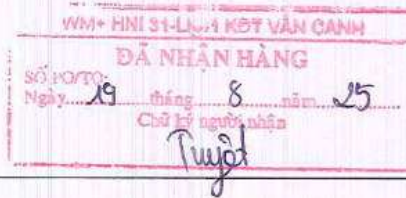 WM+ HNI 31-LK 1 KĐT VÂN CANH
ĐÃ NHẬN HÀNG
SỐ PO/TO:
Ngày 19 tháng 8 năm 25
Chữ ký người nhận
Tuyết